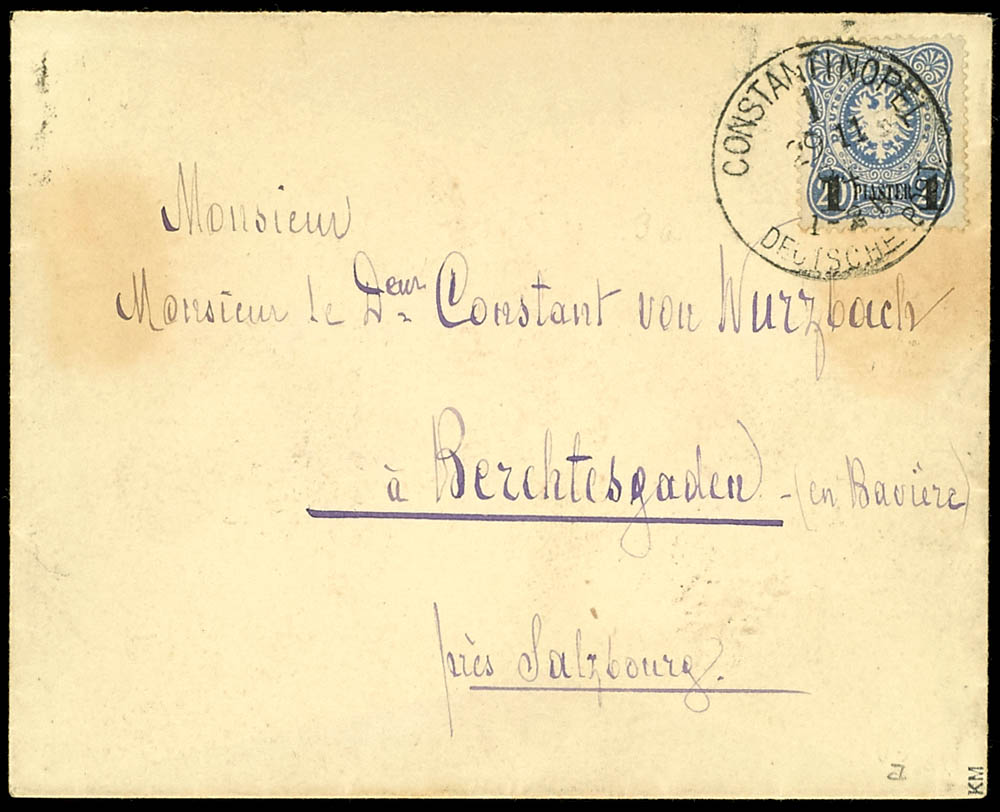 CONSTANTINOPEL
1
29 11
1 PIASTER 1
20
DEUTSCHE POST
Monsieur
Monsieur le Deur Constant von Wurzbach
à Berchtesgaden - (en Bavière)
près Salzbourg.
KM